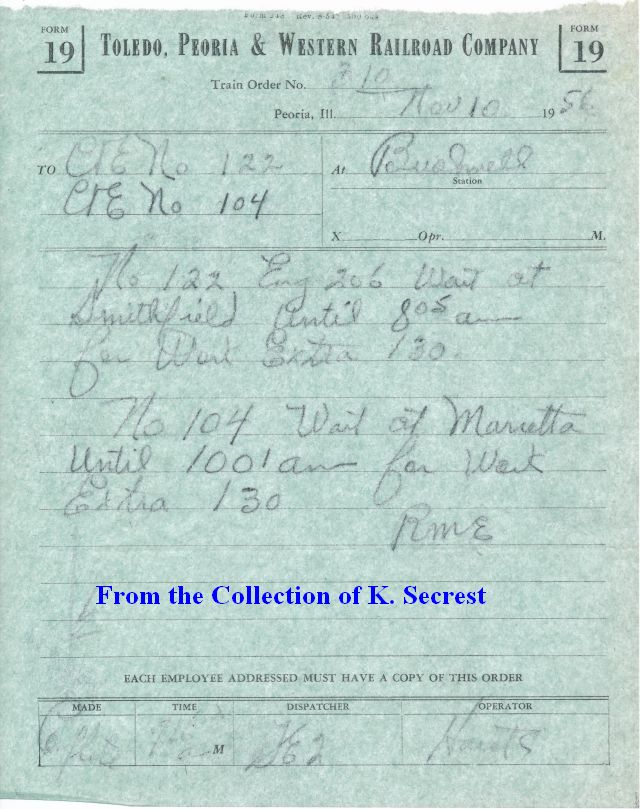 FORM 19 TOLEDO, PEORIA & WESTERN RAILROAD COMPANY FORM 19
Train Order No. 310
Peoria, Ill. Nov 10 1956
TO C&E No 122 At Bushnell
Station
C&E No 104
X Opr. M.
No 122 Eng 206 Wait at
Smithfield Until 805 am
for Work Extra 130.
No 104 Wait at Marietta
Until 1001 am for Work
Extra 130
RME
From the Collection of K. Secrest
EACH EMPLOYEE ADDRESSED MUST HAVE A COPY OF THIS ORDER
MADE TIME DISPATCHER OPERATOR
M